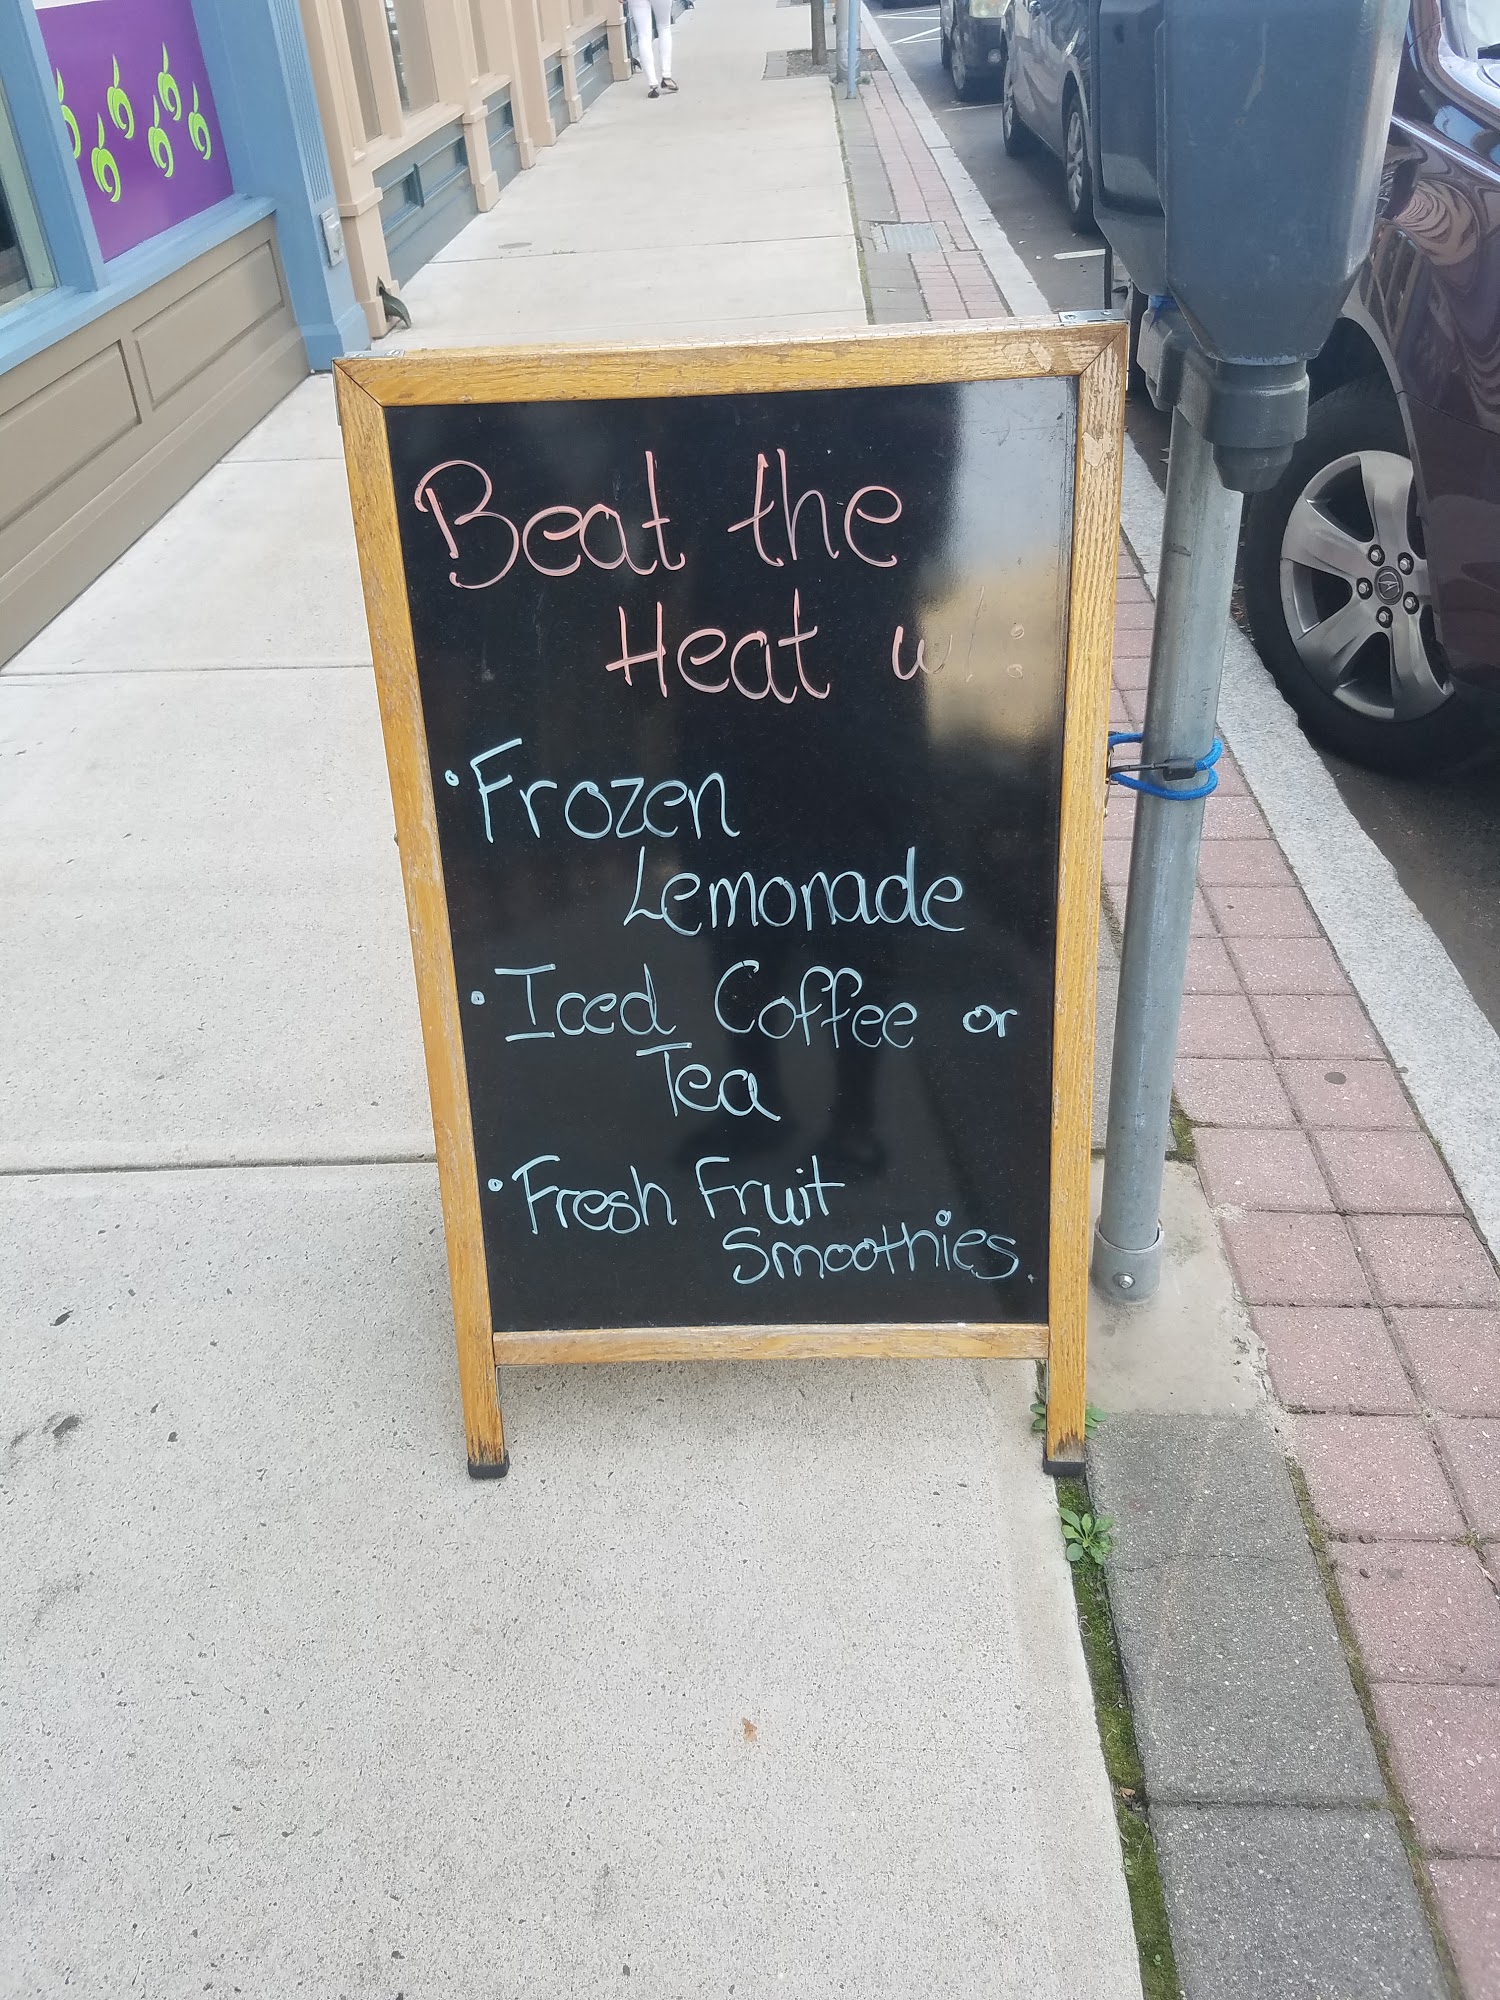 Beat the
Heat w/:
• Frozen
Lemonade
• Iced Coffee or
Tea
• Fresh Fruit
Smoothies.